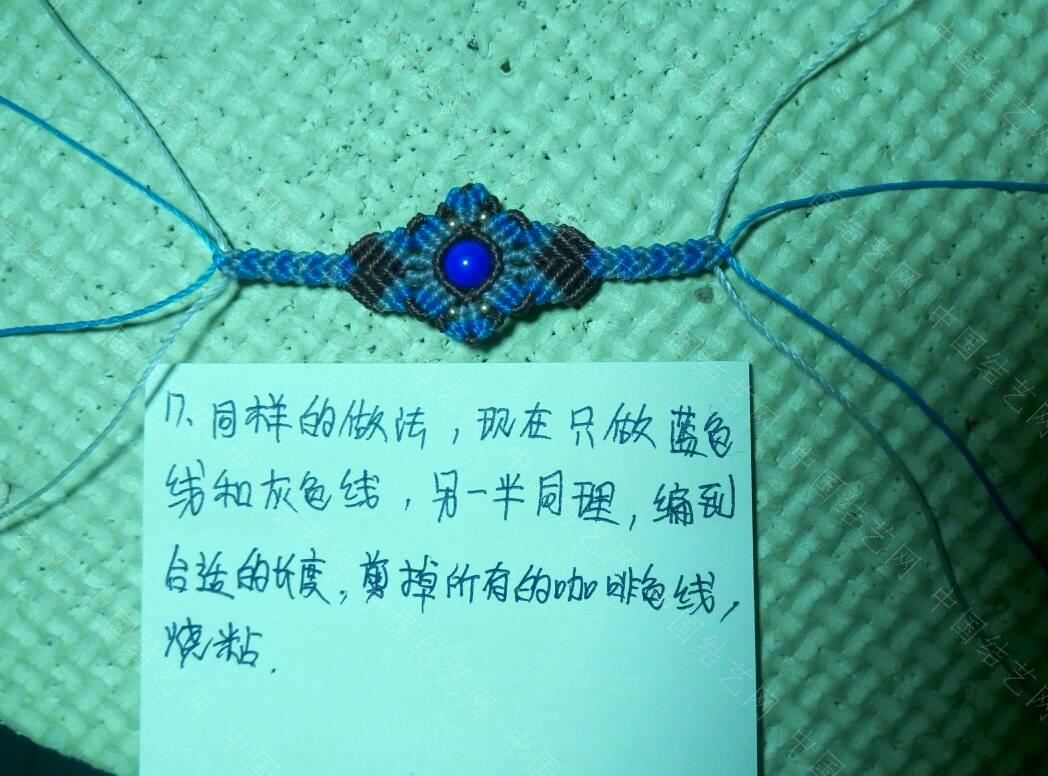 17、同样的做法，现在只做蓝色
线和灰色线，另一半同理，编到
合适的长度，剪掉所有的咖啡色线，
烧粘.
中国结艺网